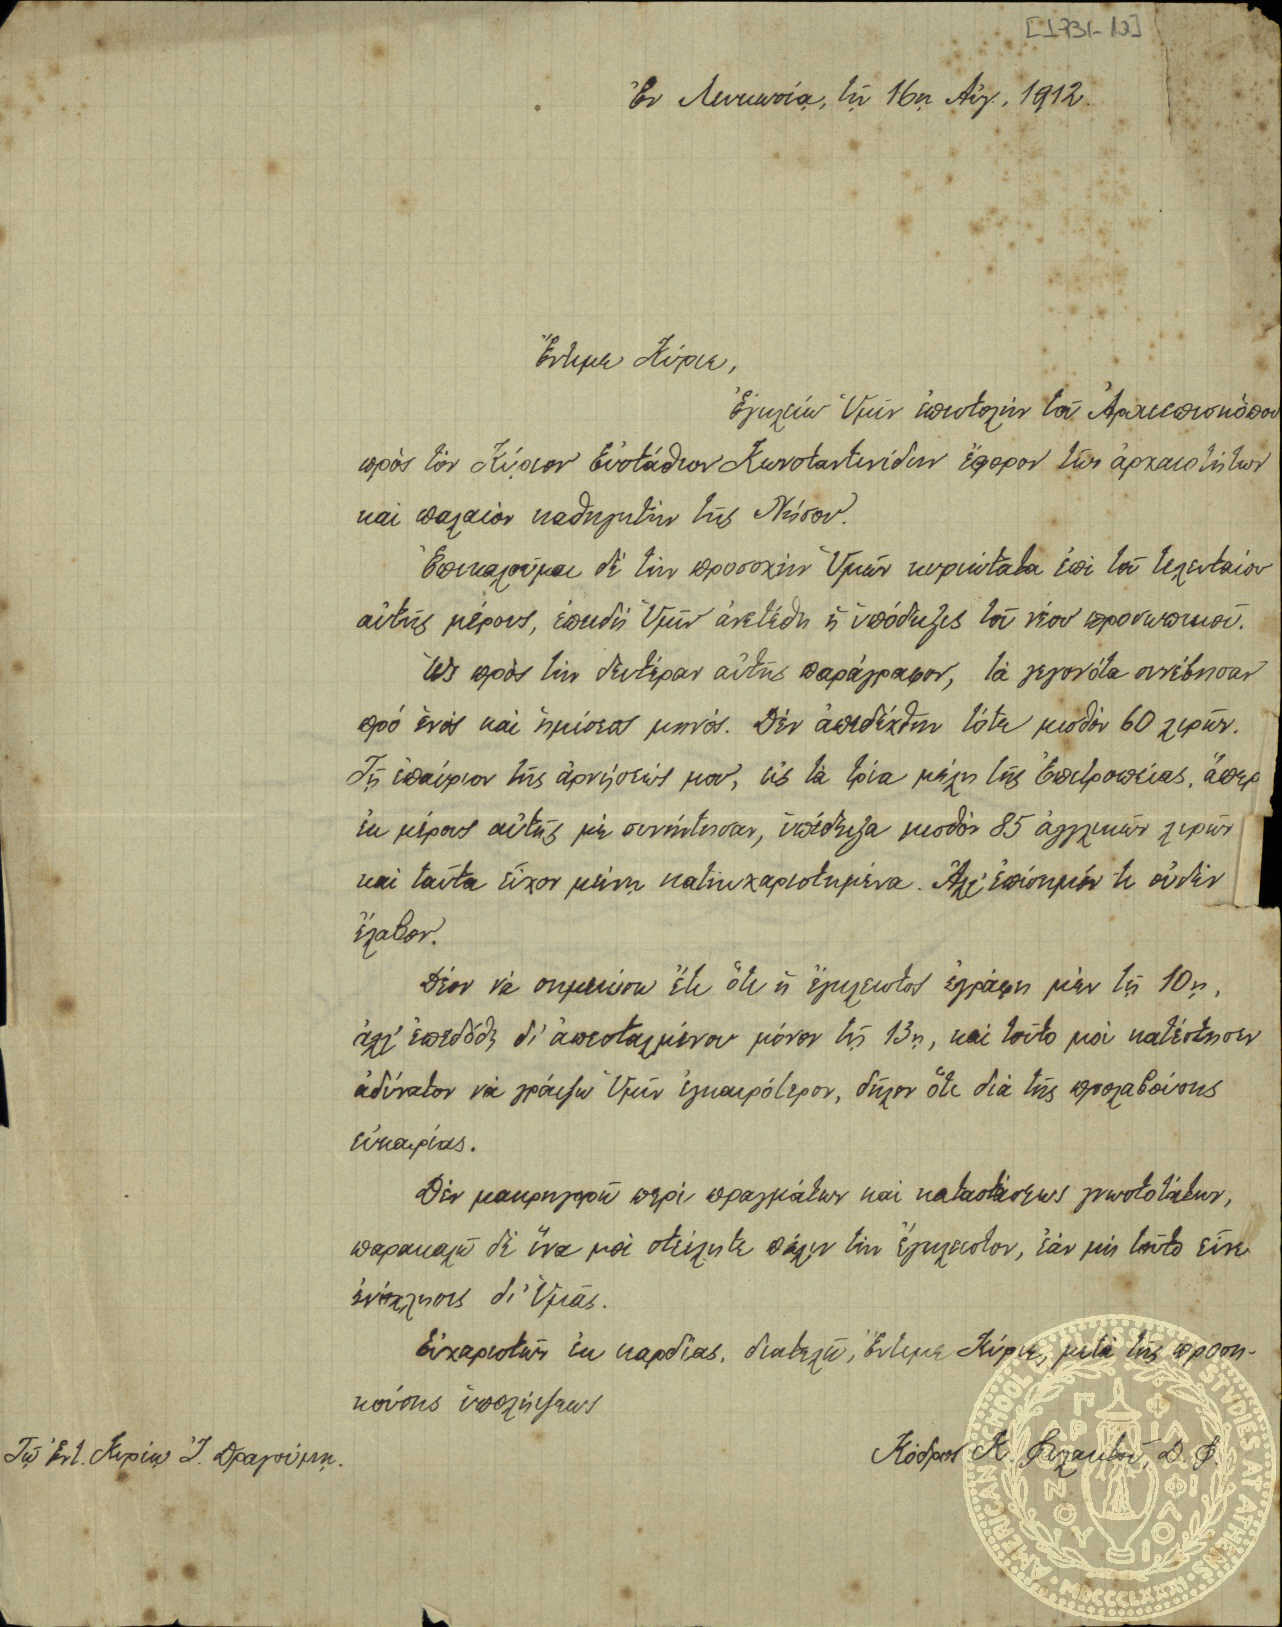 [1731-10]
Ἐν Λευκωσίᾳ, τῇ 16ῃ Αὐγ. 1912.
Ἔντιμε Κύριε,
Ἐγκλείω Ὑμῖν ἐπιστολὴν τοῦ Ἀρχιεπισκόπου
πρὸς τὸν Κύριον Εὐστάθιον Κωνσταντινίδην ἔφορον τῶν ἀρχαιοτήτων
καὶ παλαιὸν καθηγητὴν τῆς Νήσου.
Ἐπικαλοῦμαι δὲ τὴν προσοχὴν Ὑμῶν κυριώτατα ἐπὶ τοῦ τελευταίου
αὐτῆς μέρους, ἐπειδὴ Ὑμῖν ἀνετέθη ἡ ὑπόδειξις τοῦ νέου προσωπικοῦ.
Ὡς πρὸς τὴν δευτέραν αὐτῆς παράγραφον, τὰ γεγονότα συνέβησαν
πρὸ ἑνὸς καὶ ἡμίσεος μηνός. Δὲν ἀπεδέχθην τότε μισθὸν 60 λιρῶν.
Τῇ ἐπαύριον τῆς ἀρνήσεώς μου, εἰς τὰ τρία μέλη τῆς Ἐπιτροπείας, ἅπερ
ἐκ μέρους αὐτῆς μὲ συνήντησαν, ὑπέδειξα μισθὸν 85 ἀγγλικῶν λιρῶν
καὶ ταῦτα εἶχον μείνῃ κατηυχαριστημένα. Ἀλλ' ἐπίσημόν τι οὐδὲν
ἔλαβον.
Δέον νὰ σημειώσω ἔτι ὅτι ἡ ἔγκλειστος ἐγράφη μὲν τῇ 10ῃ,
ἀλλ' ἐπεδόθη δι' ἀπεσταλμένου μόνον τῇ 13ῃ, καὶ τοῦτο μοὶ κατέστησεν
ἀδύνατον νὰ γράψω Ὑμῖν ἐγκαιρότερον, δῆλον ὅτι διὰ τῆς προλαβούσης
εὐκαιρίας.
Δὲν μακρηγορῶ περὶ πραγμάτων καὶ καταστάσεως γνωστοτάτων,
παρακαλῶ δὲ ἵνα μοὶ στείλητε πάλιν τὴν ἔγκλειστον, ἐὰν μὴ τοῦτο εἶνε
ἐνόχλησις δι' Ὑμᾶς.
Εὐχαριστῶν ἐκ καρδίας, διατελῶ, Ἔντιμε Κύριε, μετὰ τῆς προση-
κούσης ὑπολήψεως
Κόδρος Κ. Φυλακτοῦ, Δ. Φ.
Τῷ Ἐντ. Κυρίῳ Ἰ. Δραγούμῃ.
AMERICAN SCHOOL STUDIES AT ATHENS
MDCCCLXXXI